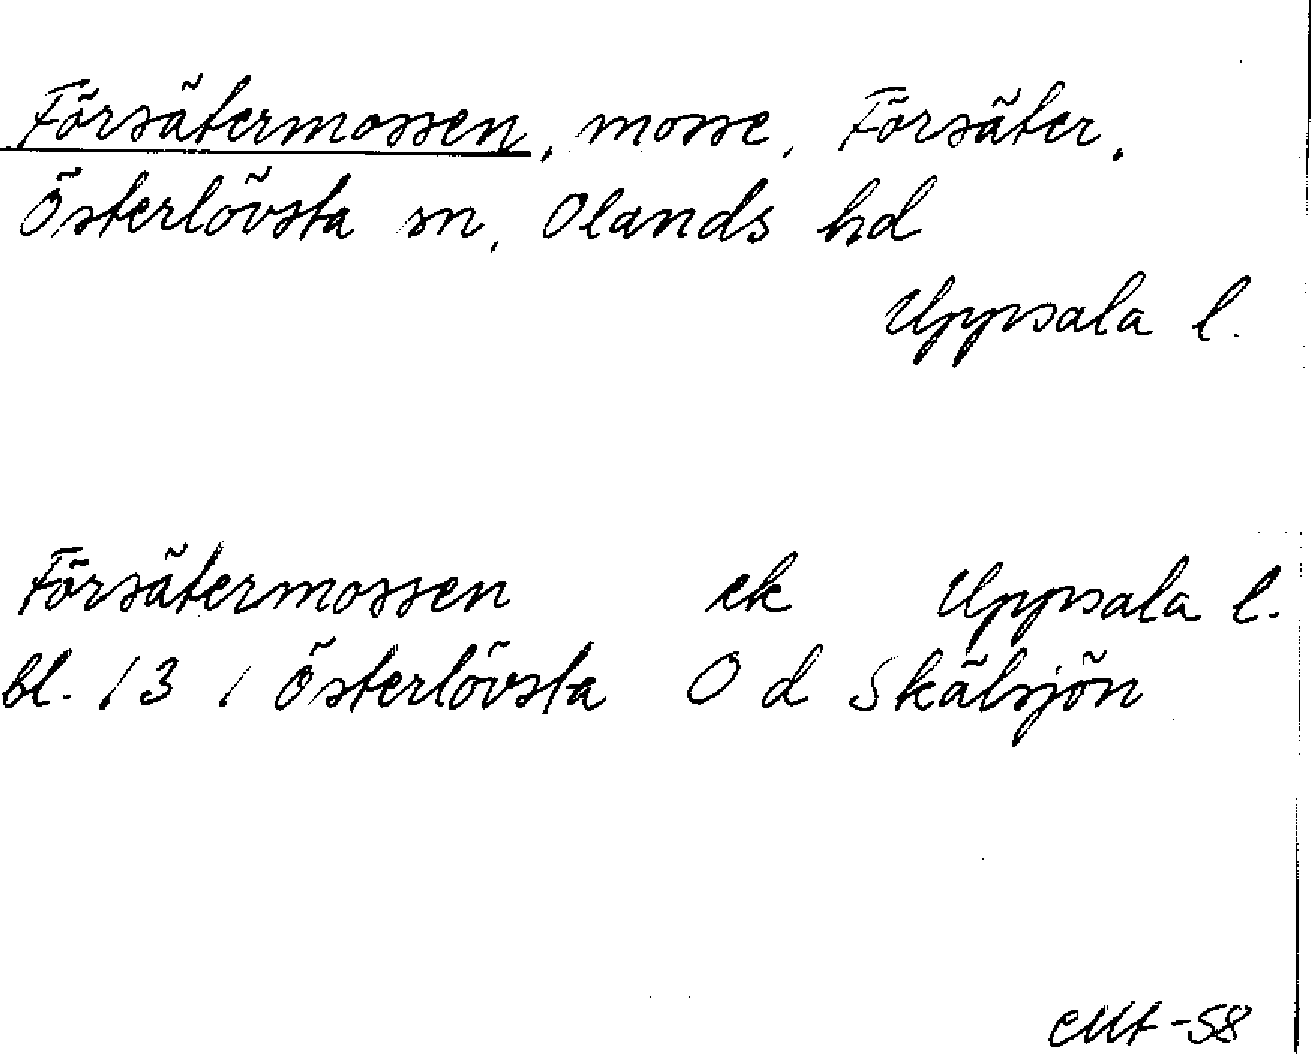 Försätermossen, mosse, Försäter,
Österlövsta sn, Olands hd
Uppsala l.
Försätermossen ek Uppsala l.
bl. 13 / Österlövsta O d Skälsjön
-58